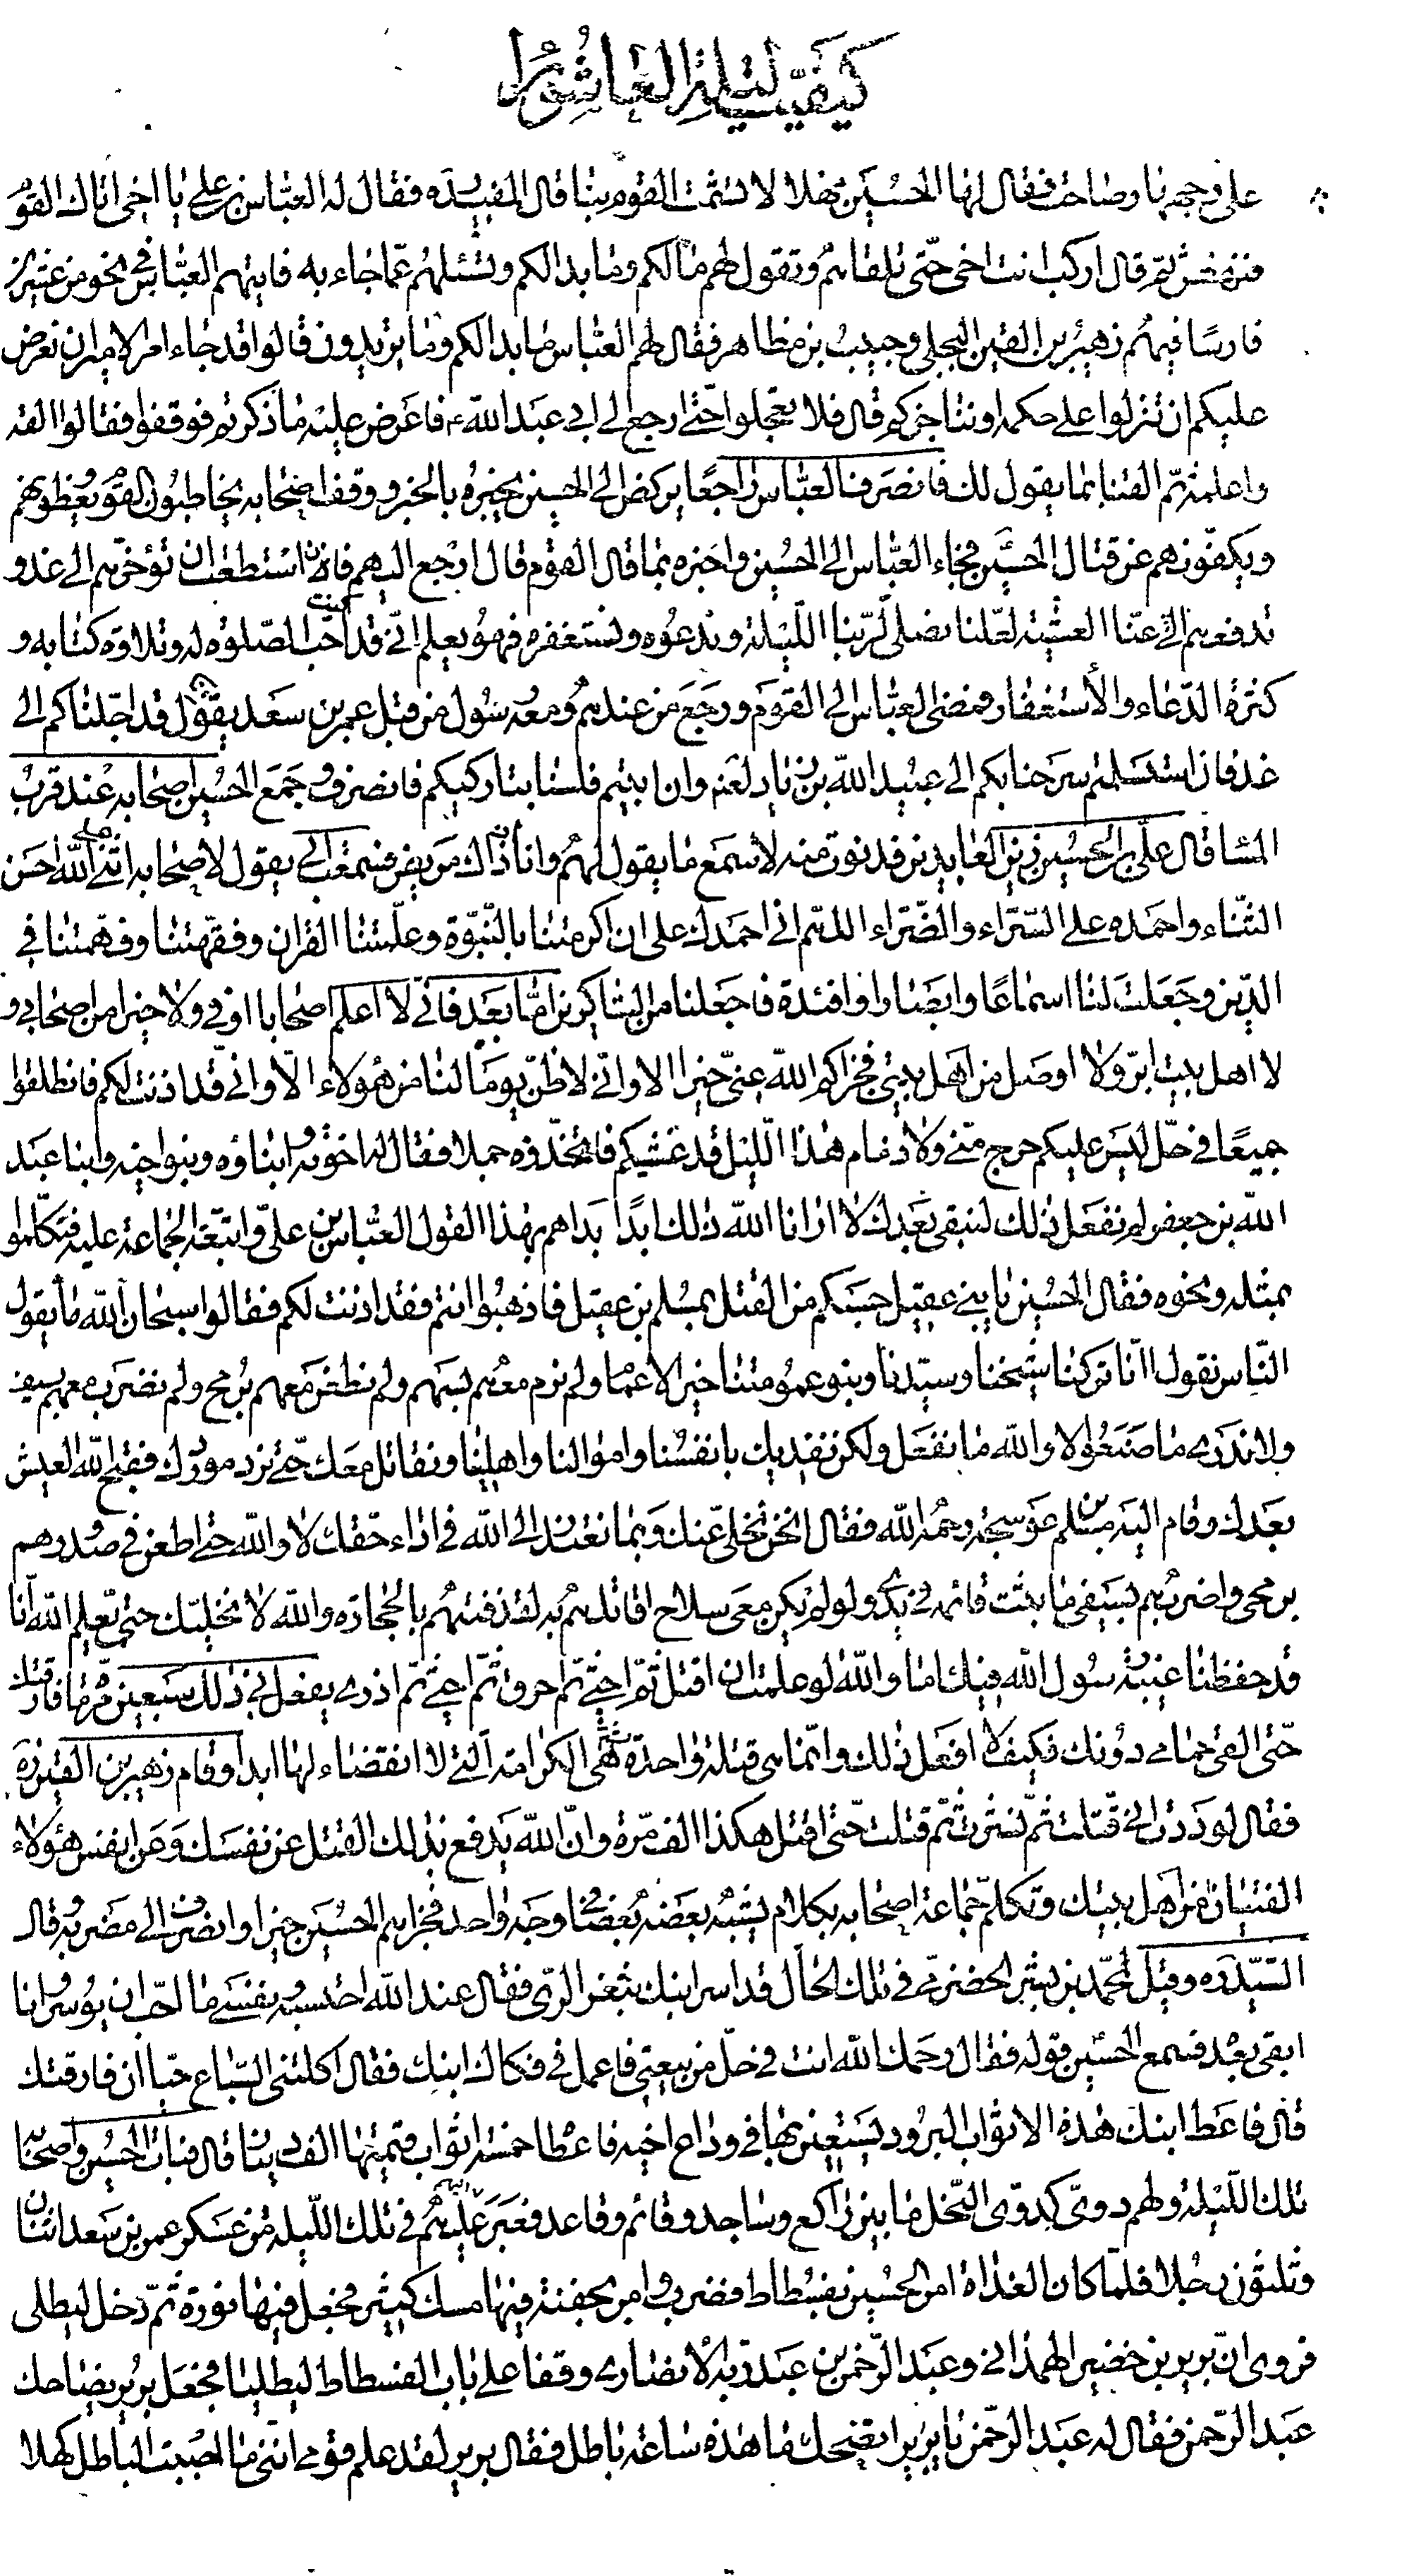 كيفية ليلة العاشورا
على وجهها وصاحت فقال لها الحسين مهلا لا تشمت القوم بنا قال المفيد ره فقال له العباس بن علي يا اخي اتاك القوم
فنهض ثم قال اركب انت اخي حتى تلقاهم وتقول لهم ما لكم وما بدا لكم وتسئلهم عما جاء به فاتيهم العباس في نحو من عشرين
فارسا فيهم زهير بن القين البجلي وحبيب بن مظاهر فقال لهم العباس ما بدا لكم وما تريدون قالوا قد جاء امر الامير ان نعرض
عليكم ان تنزلوا على حكمه او نناجزكم قال فلا تعجلوا حتى ارجع الى ابي عبد الله ع فاعرض عليه ما ذكرتم فوقفوا فقالوا القه
واعلمه ثم القنا بما يقول لك فانصرف العباس راجعا يركض الى الحسين يخبره بالخبر ووقف اصحابه يخاطبون القوم ويعظونهم
ويكفونهم عن قتال الحسين فجاء العباس الى الحسين واخبره بما قال القوم قال ارجع اليهم فان استطعت ان تؤخرهم الى غدو
تدفعهم عنا العشية لعلنا نصلي لربنا الليلة وندعوه ونستغفره فهو يعلم اني قد كنت احب الصلوة له وتلاوة كتابه و
كثرة الدعاء والأستغفار فمضى العباس الى القوم ورجع من عندهم ومعه رسول من قبل عمر بن سعد يقول قد اجلناكم الى
غد فان استسلمتم سرحنا بكم الى عبيد الله بن زياد لعنه وان ابيتم فلسنا بتاركيكم فانصرف وجمع الحسين اصحابه عند قرب
المسا قال علي بن الحسين زين العابدين فدنوت منه لاسمع ما يقول لهم وانا اذ ذاك مريض فسمعت ابي يقول لاصحابه اثني على الله احسن
الثناء واحمده على السراء والضراء اللهم اني احمدك على ان اكرمتنا بالنبوة وعلمتنا القران وفقهتنا وفهمتنا في
الدين وجعلت لنا اسماعا وابصارا وافئدة فاجعلنا من الشاكرين اما بعد فاني لا اعلم اصحابا اوفى ولا خيرا من اصحابي و
لا اهل بيت ابر ولا اوصل من اهل بيتي فجزاكم الله عني خيرا الا واني لاظن يوما لنا من هؤلاء الا واني قد اذنت لكم فانطلقوا
جميعا في حل ليس عليكم حرج مني ولا ذمام هذا الليل قد غشيكم فاتخذوه جملا فقال له اخوته وابناؤه وبنو اخيه وابنا عبد
الله بن جعفر لم نفعل ذلك لنبقى بعدك لا ارانا الله ذلك ابدا بداهم بهذا القول العباس بن علي واتبعته الجماعة عليه فتكلموا
بمثله ونحوه فقال الحسين يا بني عقيل حسبكم من القتل بمسلم بن عقيل فاذهبوا انتم فقد اذنت لكم فقالوا سبحان الله ما يقول
الناس نقول انا تركنا شيخنا وسيدنا وبنو عمومتنا خير الاعمام ولم نرم معهم بسهم ولم نطعن معهم برمح ولم نضرب معهم بسيف
ولا ندري ما صنعوا لا والله ما نفعل ولكن نفديك بانفسنا واموالنا واهلينا ونقاتل معك حتى نرد موردك فقبح الله العيش
بعدك وقام اليه مسلم بن عوسجة رحمه الله فقال انحن نخلي عنك وبما نعتذر الى الله في اداء حقك لا والله حتى اطعن في صدورهم
برمحي واضربهم بسيفي ما ثبت قائمه في يدي ولو لم يكن معي سلاح اقاتلهم به لقذفتهم بالحجارة والله لا نخليك حتى يعلم الله انا
قد حفظنا غيبة رسول الله فيك اما والله لو علمت ان اقتل ثم احيى ثم احرق ثم احيى ثم اذرى يفعل بي ذلك سبعين مرة ما فارقتك
حتى القى حمامي دونك فكيف لا افعل ذلك وانما هي قتلة واحدة ثم هي الكرامة التي لا انقضاء لها ابدا وقام زهير بن القين ره
فقال لوددت اني قتلت ثم نشرت ثم قتلت حتى اقتل هكذا الف مرة وان الله يدفع بذلك القتل عن نفسك وعن انفس هؤلاء
الفتيان من اهل بيتك وتكلم جماعة اصحابه بكلام يشبه بعضه بعضا في وجه واحد فجزاهم الحسين خيرا وانصرف الى مضربه قال
السيد ره وقيل لمحمد بن بشر الحضرمي في تلك الحال قد اسر ابنك بثغر الري فقال عند الله احتسبه ونفسي ما احب ان يوسر وانا
ابقى بعده فسمع الحسين قوله فقال رحمك الله انت في حل من بيعتي فاعمل في فكاك ابنك فقال اكلتني السباع حيا ان فارقتك
قال فاعط ابنك هذه الاثواب البرود يستعين بها في فداء اخيه فاعطاه خمسة اثواب قيمتها الف دينار قال فبات الحسين واصحابه
تلك الليلة ولهم دوي كدوي النحل ما بين راكع وساجد وقائم وقاعد فعبر عليهم في تلك الليلة من عسكر عمر بن سعد اثنان
وثلثون رجلا فلما كان الغداة امر الحسين بفسطاط فضرب وامر بجفنة فيها مسك كثير فجعل فيها نورة ثم دخل ليطلي
فروي ان برير بن خضير الهمداني وعبد الرحمن بن عبد ربه الانصاري وقفا على باب الفسطاط ليطليا فجعل برير يضاحك
عبد الرحمن فقال له عبد الرحمن يا برير اتضحك ما هذه ساعة باطل فقال برير لقد علم قومي انني ما احببت الباطل كهلا